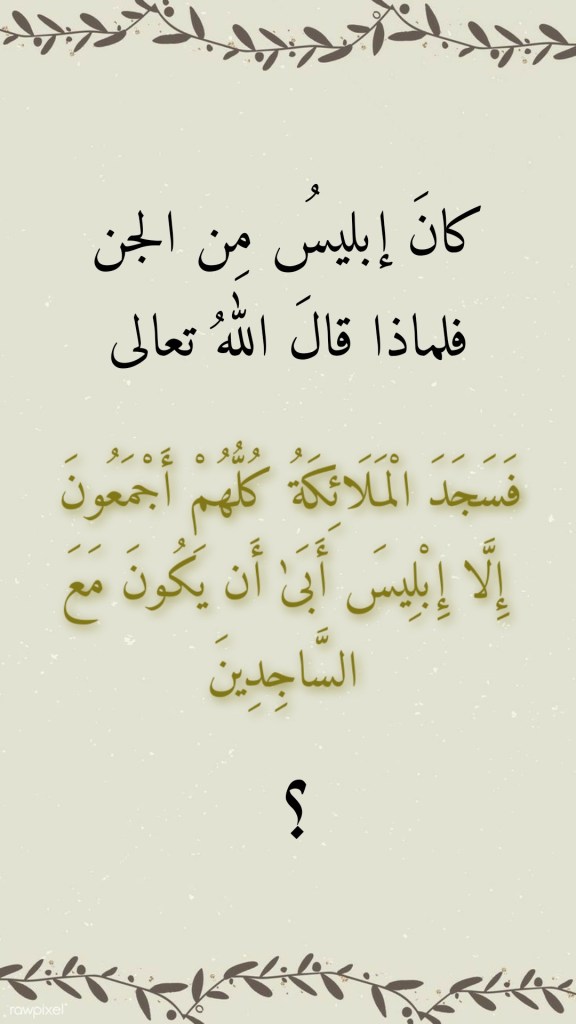 كانَ إبليسُ مِن الجن
فلماذا قالَ اللهُ تعالى
فَسَجَدَ الْمَلَائِكَةُ كُلُّهُمْ أَجْمَعُونَ
إِلَّا إِبْلِيسَ أَبَىٰ أَن يَكُونَ مَعَ
السَّاجِدِينَ
؟
rawpixel